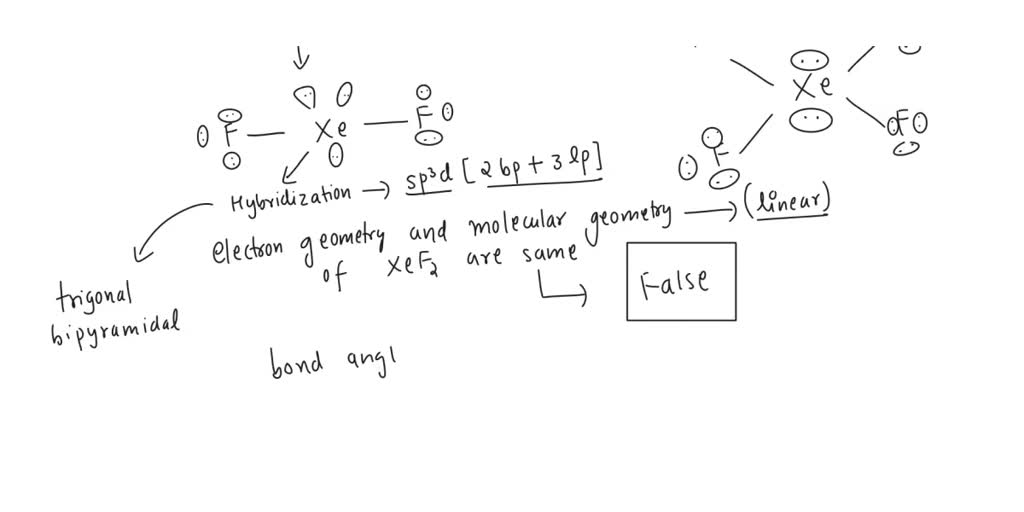 F Xe F
Xe
F
F
Hybridization → sp³d [2 bp + 3 lp]
electron geometry and molecular geometry → (linear)
of XeF₂ are same
False
trigonal
bipyramidal
bond angl